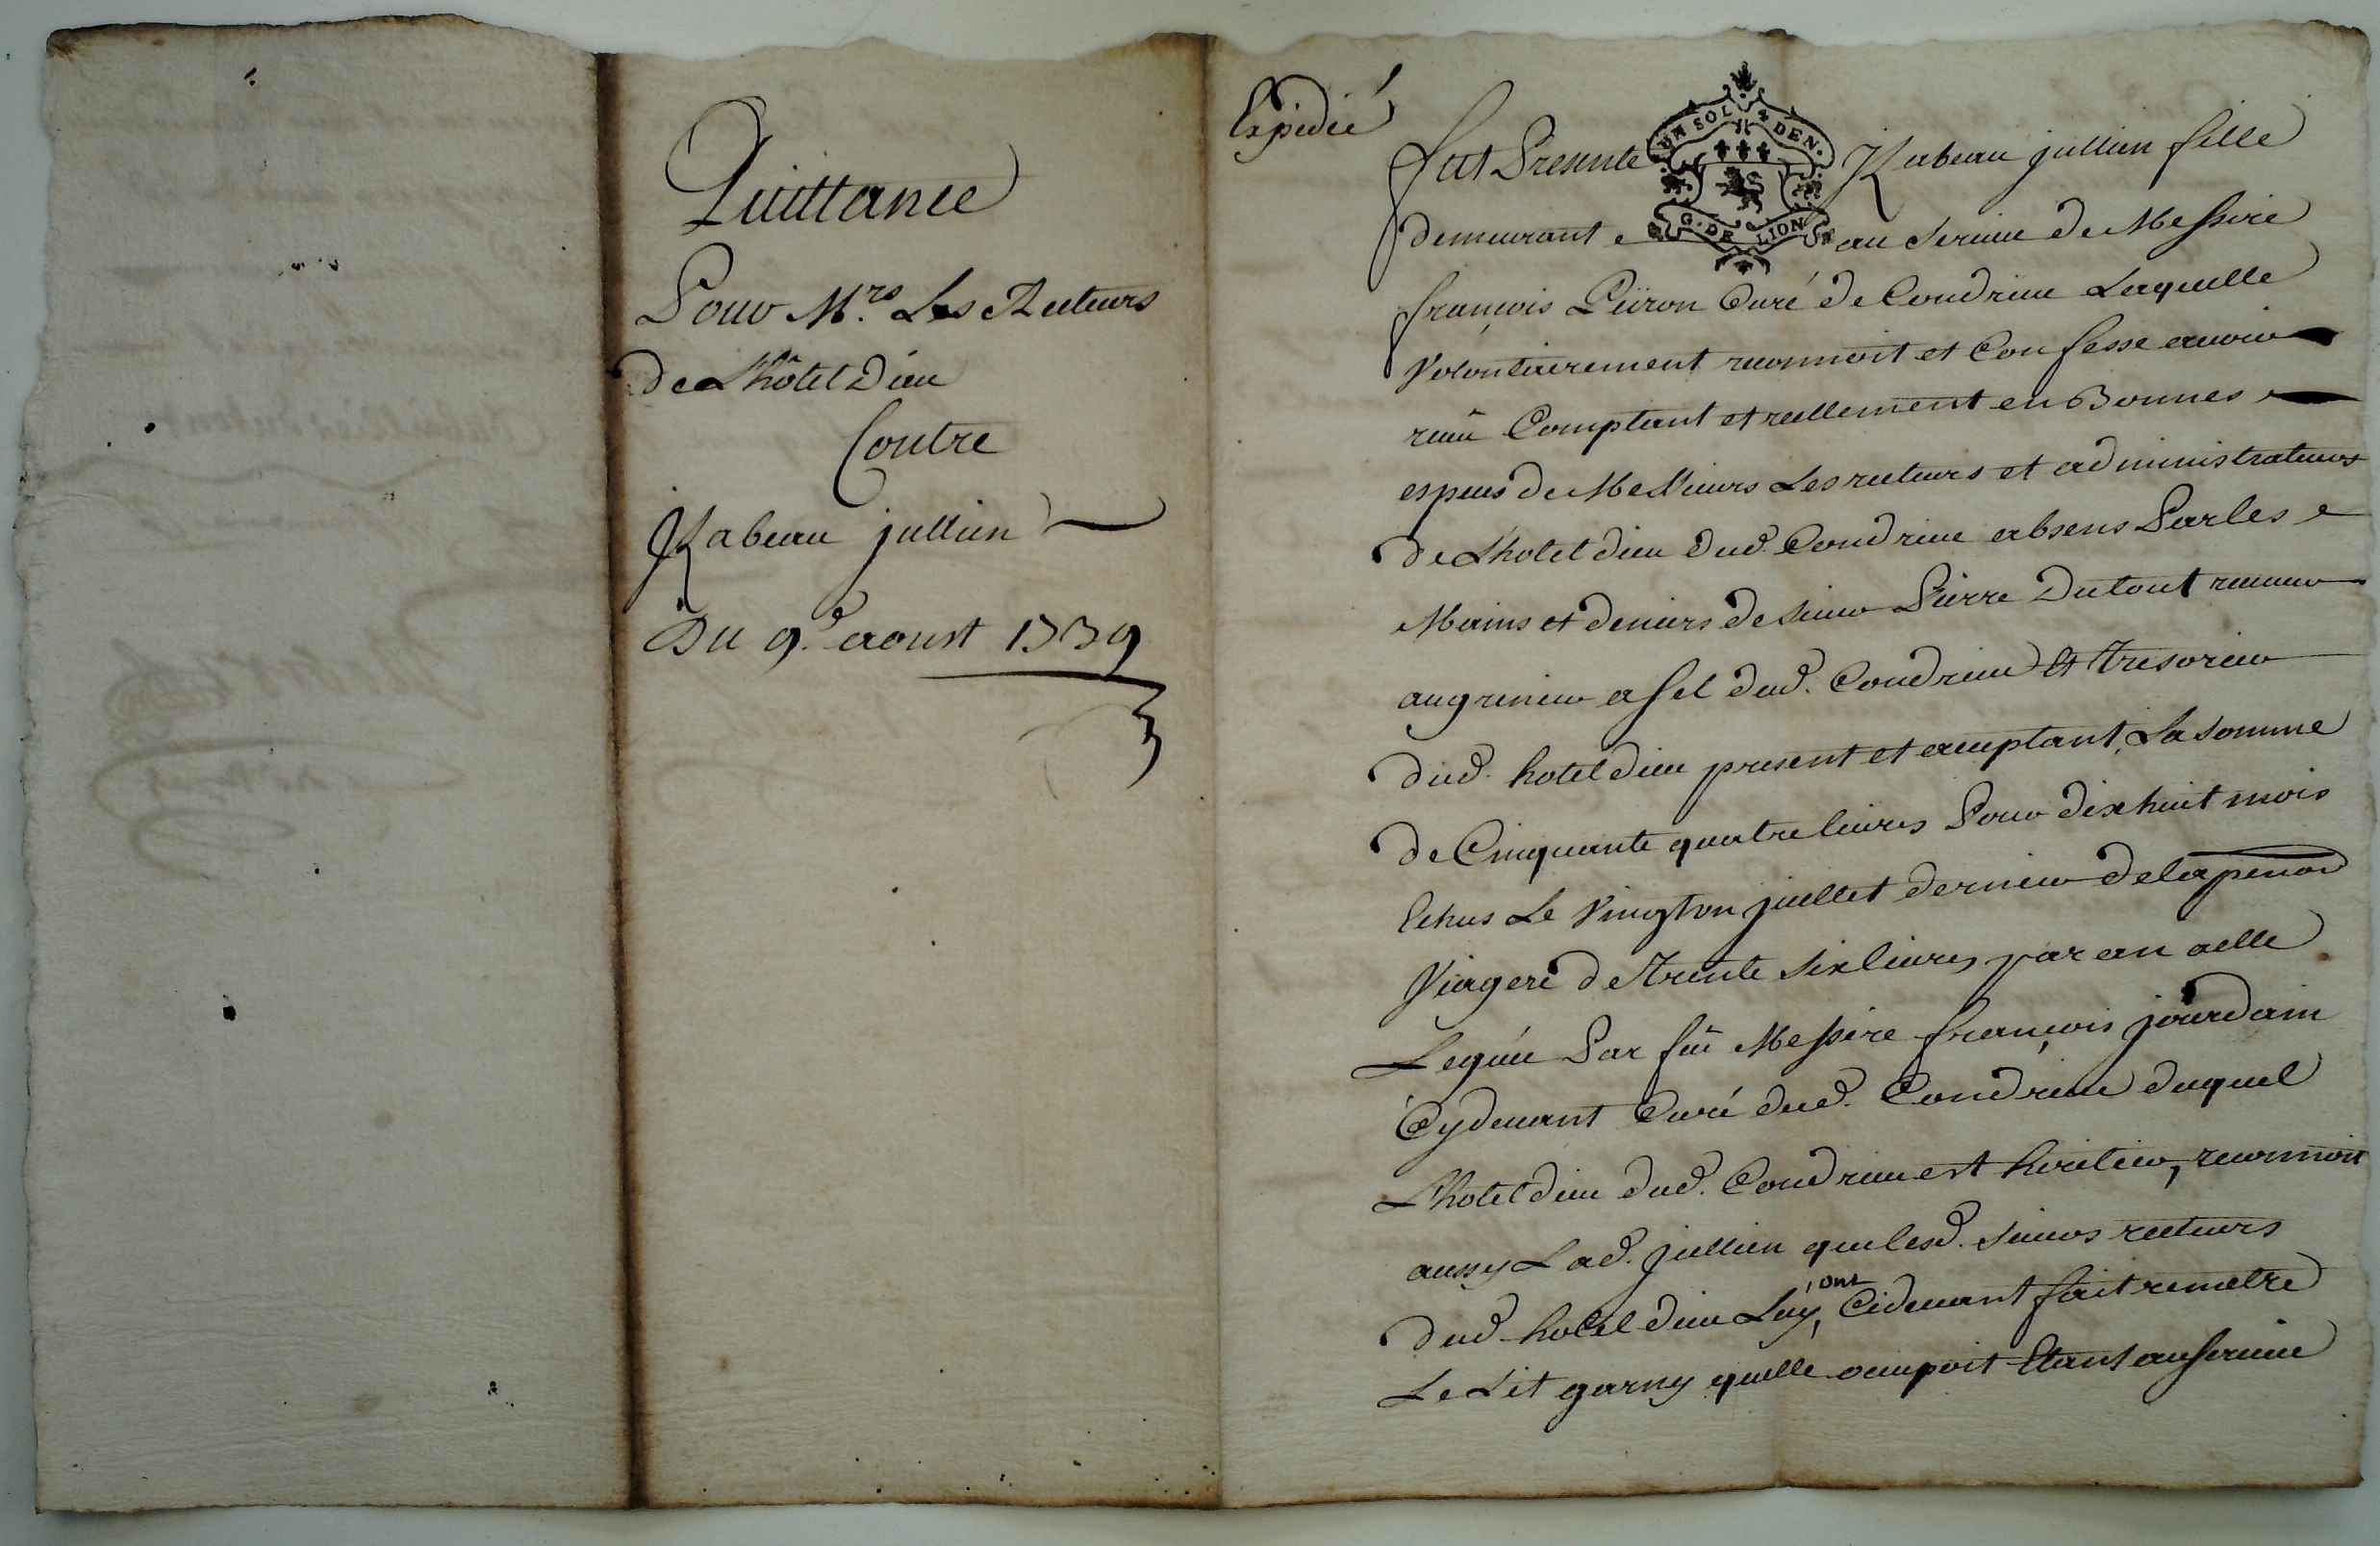 Quittance
Pour M.rs Les Recteurs
de L'hôtel Dieu
Contre
Izabeau jullien
Du 9.e aoust 1739
Expedié
UN SOL 4 DEN.
G. DE LION
fut Presente Izabeau jullien fille
demeurante au service de Messire
françois Piiron Curé de Condrieu Laquelle
Volontairement reconnoit et Confesse avoir
receu Comptant et reellement en Bonnes
especes de Messieurs Les recteurs et administrateurs
de L'hotel dieu dud. Condrieu absens Par les
Mains et deniers de sieur Pierre Dutout receveur
au grenier a sel dud. Condrieu Et tresorier
dud. hotel dieu present et acceptant, La somme
de Cinquante quatre livres Pour dix huit mois
Echus Le Vingt un juillet dernier de la pension
Viagere de Trente six livres par an a elle
Leguée Par feu Messire françois jourdain
Cydevant Curé dud. Condrieu duquel
L'hotel dieu dud. Condrieu est heritier, reconnoit
aussy Lad. jullien que lesd. sieurs recteurs
dud. hotel dieu Luy ont Cidevant fait remetre
Le Lit garny quelle occupoit Etant au service